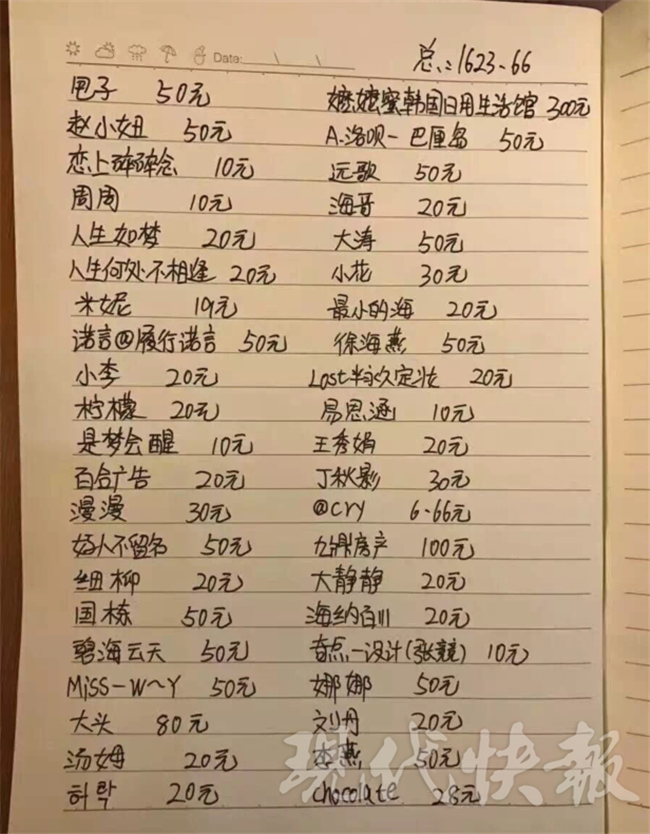 Date:
总:1623.66
甩子 50元 嬷嬷蜜韩国日用生活馆 300元
赵小妞 50元 A.洛呗一巴厘岛 50元
恋上碎碎念 10元 远歌 50元
周周 10元 海音 20元
人生如梦 20元 大涛 50元
人生何处不相逢 20元 小花 30元
米妮 19元 最小的海 20元
诺言@履行诺言 50元 徐海燕 50元
小李 20元 Lost半永久定妆 20元
柠檬 20元 易思涵 10元
是梦会醒 10元 王秀娟 20元
百合广告 20元 丁秋影 30元
漫漫 30元 @cry 6.66元
好人不留名 50元 九鼎房产 100元
细柳 20元 大静静 20元
国栋 50元 海纳百川 20元
碧海云天 50元 奇点一设计(张競) 10元
Miss-W~Y 50元 娜娜 50元
大头 80元 刘丹 20元
汤姆 20元 李燕 50元
허락 20元 chocolate 28元
现代快報